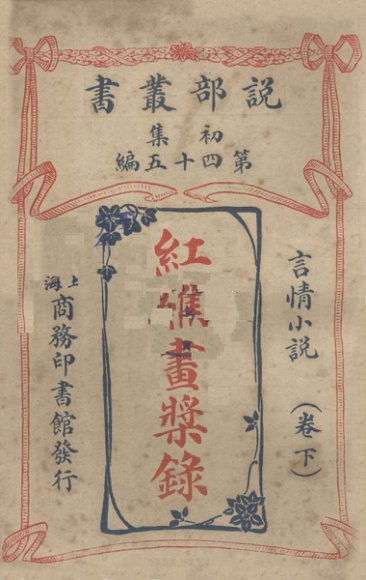 說部叢書
初集
第四十五編
言情小說（卷下）
紅礁畫槳錄
上海
商務印書館發行